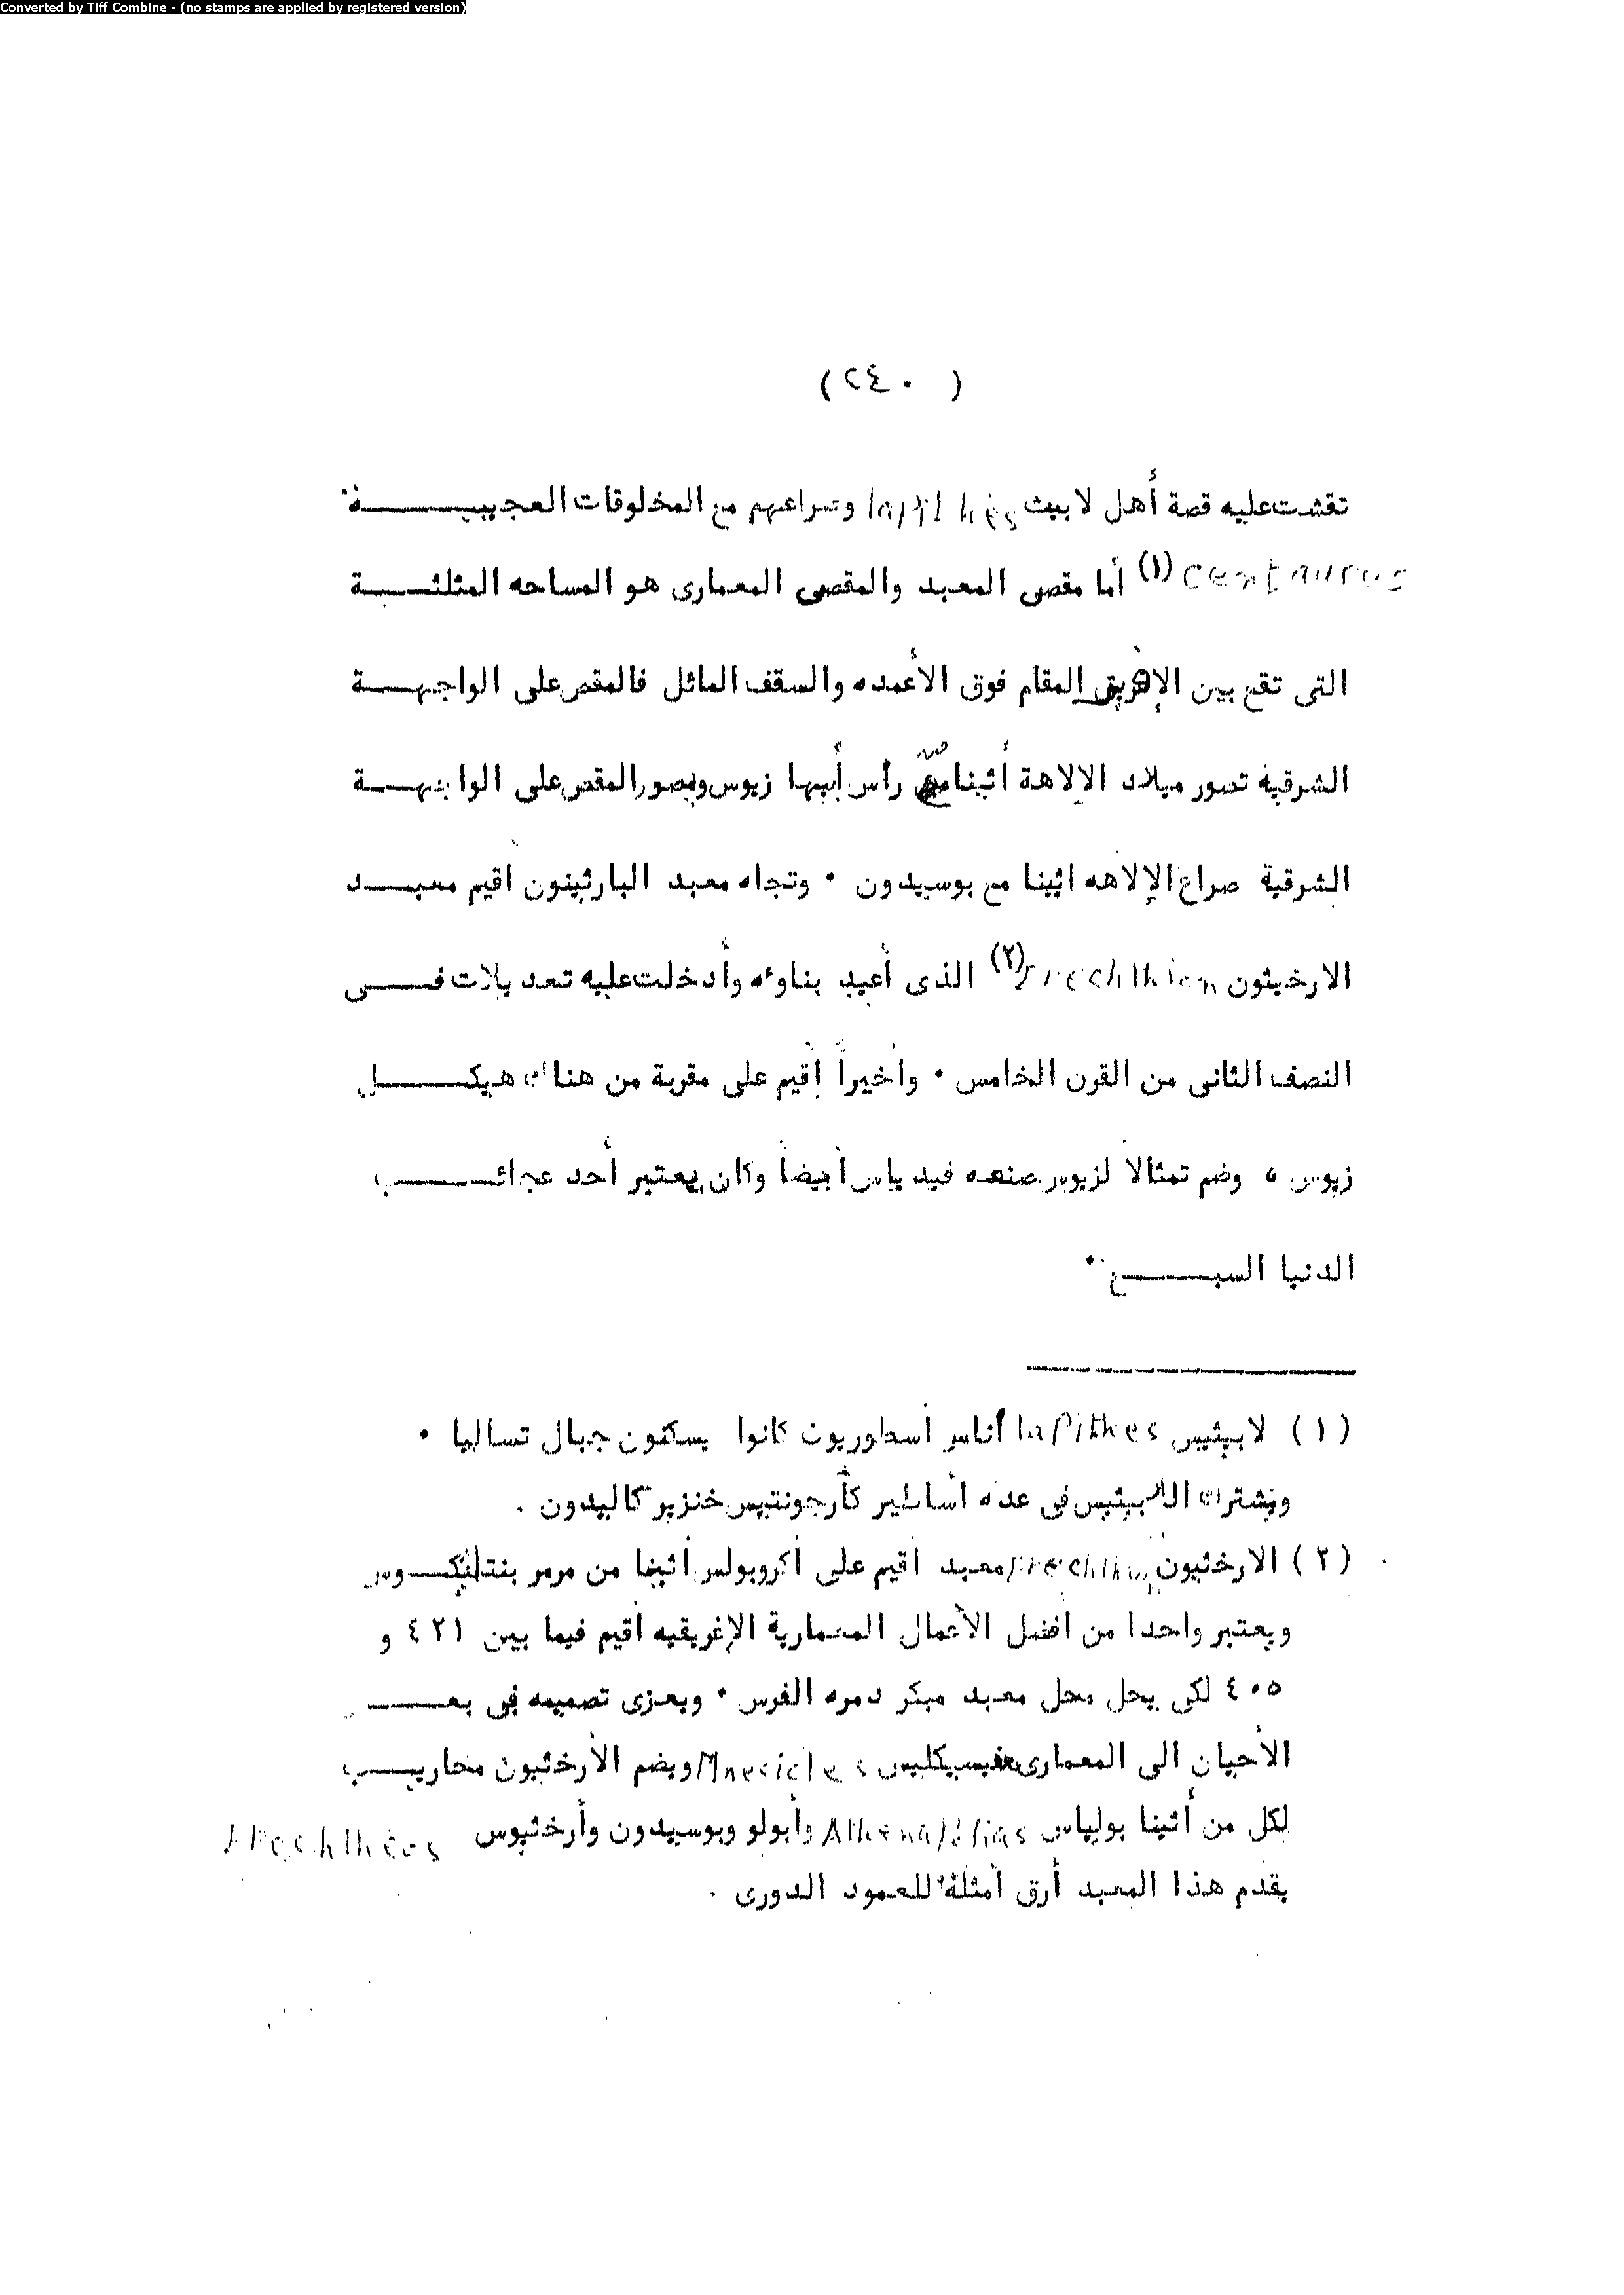 Converted by Tiff Combine - (no stamps are applied by registered version)
( ٢٤٠ )
نقشت عليه قصة أهل لابيث lapithes وصراعهم مع المخلوقات العجيبة
centaurus (١) أما مقص المعبد والمقصى المعمارى هو المساحه المثلثة
التى تقع بين الإفريز المقام فوق الأعمده والسقف المائل فالمقص على الواجهة
الشرقية تصور ميلاد الإلاهة أثينا من رأس أبيها زيوس ويصور المقص على الواجهة
الشرقية صراع الإلاهه اثينا مع بوسيدون ٠ وتجاه معبد البارثينون أقيم معبد
الارخيثون (٢) الذى أعيد بناوءه وأدخلت عليه تعديلات فى
النصف الثانى من القرن الخامس ٠ وأخيراً أقيم على مقربة من هناك هيكل
زيوس ، وضم تمثالا لزيوس صنعه فيدياس أيضاً وكان يعتبر أحد عجائب
الدنيا السبع ٠
(١) لابيثيس lapithes أناس أسطوريون كانوا يسكنون جبال تساليا ٠
ويشترك اللابيثيس فى عدة أساطير كأرجونتيس خنزير كاليدون .
(٢) الارخثيون معبد أقيم على أكروبولس أثينا من مرمر بنتليكوس
ويعتبر واحدا من أفضل الأعمال المعمارية الإغريقيه أقيم فيما بين ٤٢١ و
٤٠٥ لكى يحل محل معبد مبكر دمره الفرس ٠ ويعزى تصميمه فى بعض
الأحيان الى المعمارى Mnesicles ويضم الأرخثيون محاريب
لكل من أثينا بولياس Athena Polias وأبولو وبوسيدون وأرخثيوس Erechtheos
يقدم هذا المعبد أرق أمثلة للعمود الدورى .